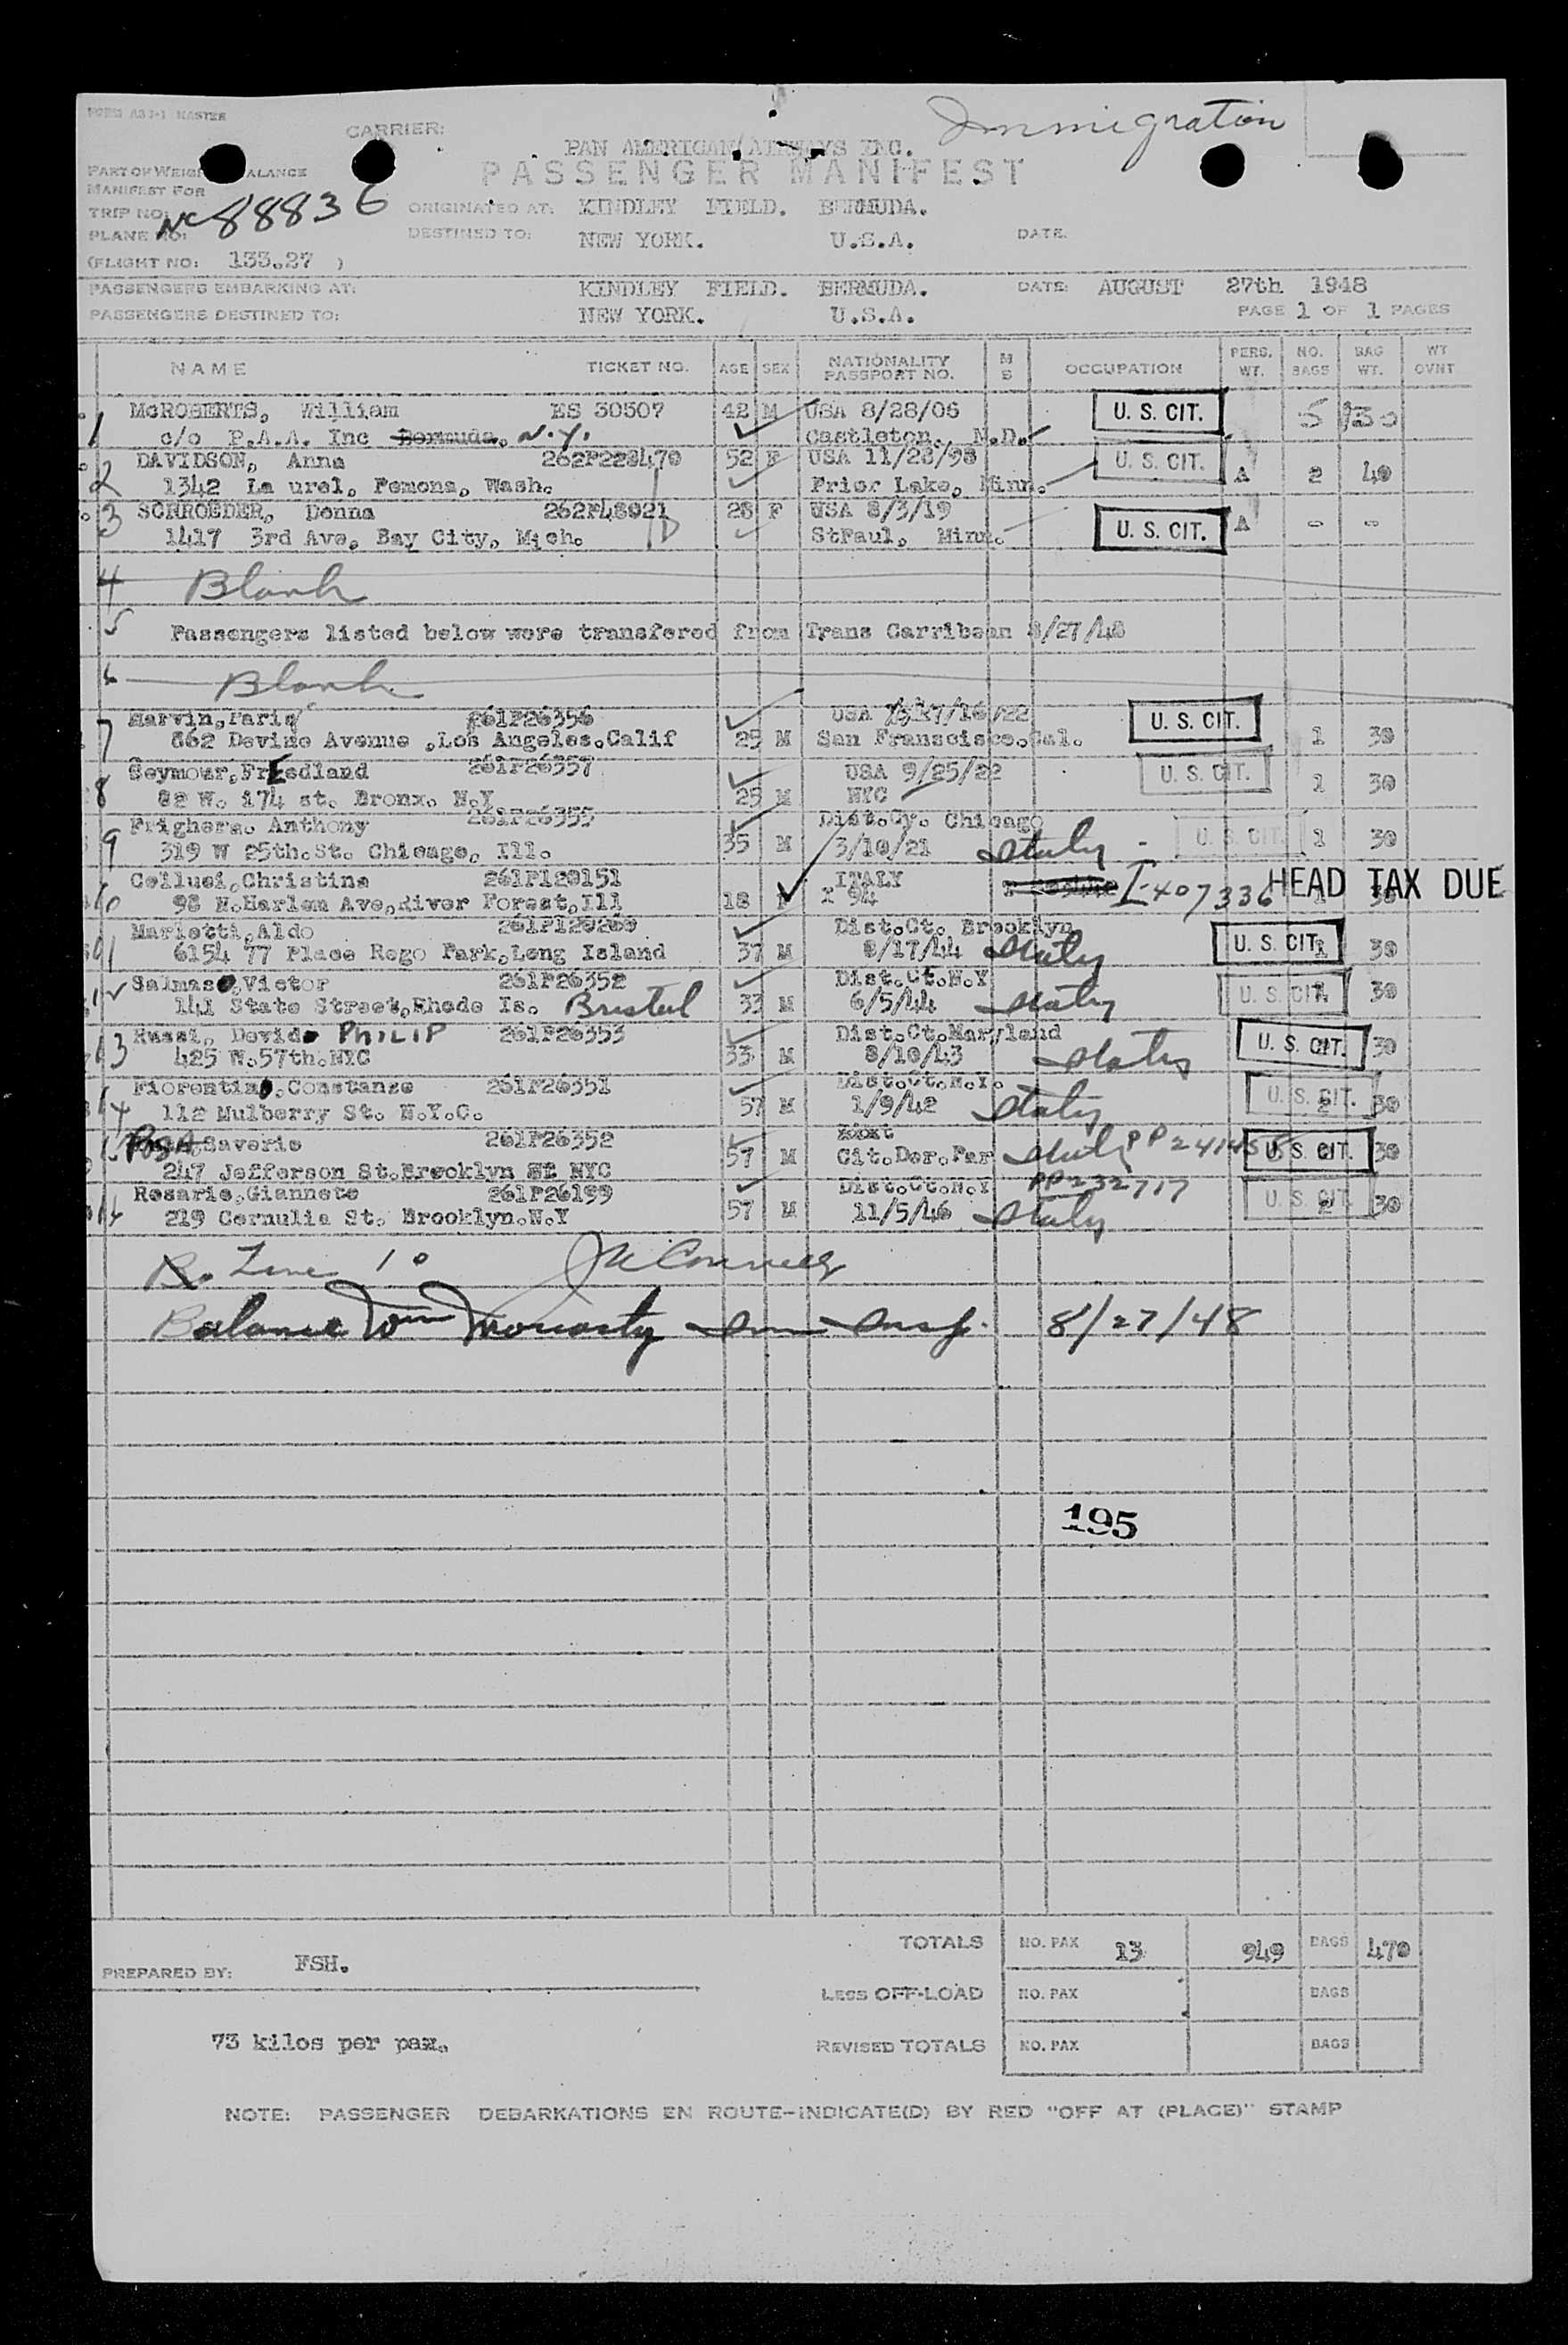 FORM AB 1-1 MASTER
Immigration
CARRIER:
PAN AMERICAN AIRWAYS INC.
PASSENGER MANIFEST
PART OF WEIGHT BALANCE
MANIFEST FOR
TRIP NO:
PLANE NO: NC 88836
ORIGINATED AT: KINDLEY FIELD. BERMUDA.
DESTINED TO: NEW YORK. U.S.A. DATE:
(FLIGHT NO: 133.27 )
PASSENGERS EMBARKING AT: KINDLEY FIELD. BERMUDA. DATE: AUGUST 27th 1948
PASSENGERS DESTINED TO: NEW YORK. U.S.A. PAGE 1 OF 1 PAGES
NAME TICKET NO. AGE SEX NATIONALITY PASSPORT NO. M S OCCUPATION PERS. WT. NO. BAGS BAG WT. WT OVNT
1 McROBERTS, William ES 30507 42 M USA 8/28/06 U. S. CIT. 5 130
c/o P.A.A. Inc Bermuda, N.Y. Castleton, N.D.
2 DAVIDSON, Anna 262P228470 52 F USA 11/28/98 U. S. CIT. A 2 40
1342 La urel, Pomona, Wash. Prior Lake, Minn.
3 SCHROEDER, Donna 262P48021 28 F USA 8/3/19 U. S. CIT. A - -
1417 3rd Ave, Bay City, Mich. StPaul, Minn.
4 Blank
5 Passengers listed below were transfered from Trans Carribean 8/27/48
6 Blank
7 Marvin, 261P26356 USA 7/16/22 U. S. CIT.
862 Devine Avenue ,Los Angeles.Calif 25 M San Franscisco.Cal. 1 30
8 Seymour,Friedland 261P26357 USA 9/25/22 U. S. CIT.
82 W. 174 st. Bronx. N.Y 25 M NYC 1 30
9 Frighera. Anthony 261P26355 Dist.Cy. Chicago
319 W 25th.St. Chicago, Ill. 35 M 3/10/21 Italy U. S. CIT. 1 30
10 Cellusi,Christina 261P120151 ITALY
98 N.Harlem Ave,River Forest,Ill 18 I 94 I-407336 HEAD TAX DUE 1 30
11 Marietti,Aldo 261P120260 Dist.Ct. Brooklyn
6154 77 Place Rego Park,Long Island 37 M 8/17/44 Italy U. S. CIT. 1 30
12 Salmaso,Victor 261P26352 Dist.Ct.N.Y
141 State Street,Rhode Is. Bristol 33 M 6/5/44 Italy U. S. CIT. 30
13 Russi, David PHILIP 261P26353 Dist.Ct.Maryland
425 W.57th.NYC 33 M 8/10/43 Italy U. S. CIT. 30
14 Fiorentino,Constanze 261P26351 Dist.Ct.N.Y.
112 Mulberry St. N.Y.C. 57 M 1/9/42 Italy U. S. CIT. 2 30
15 Saverio 261P26352
247 Jefferson St.Brooklyn NYC 57 M Cit.Der.Par Italy PP 241458 U. S. CIT. 30
16 Rosario,Giannete 261P26199 Dist.Ct.N.Y PP232717
219 Cornulia St. Brooklyn.N.Y 57 M 11/5/46 Italy U. S. CIT. 2 30
Line 10
Balance Wm Moriarty Imm Insp. 8/27/48
195
TOTALS NO. PAX 13 949 BAGS 470
PREPARED BY: FSH.
LESS OFF-LOAD NO. PAX BAGS
73 kilos per pax.
REVISED TOTALS NO. PAX BAGS
NOTE: PASSENGER DEBARKATIONS EN ROUTE-INDICATE(D) BY RED "OFF AT (PLACE)" STAMP